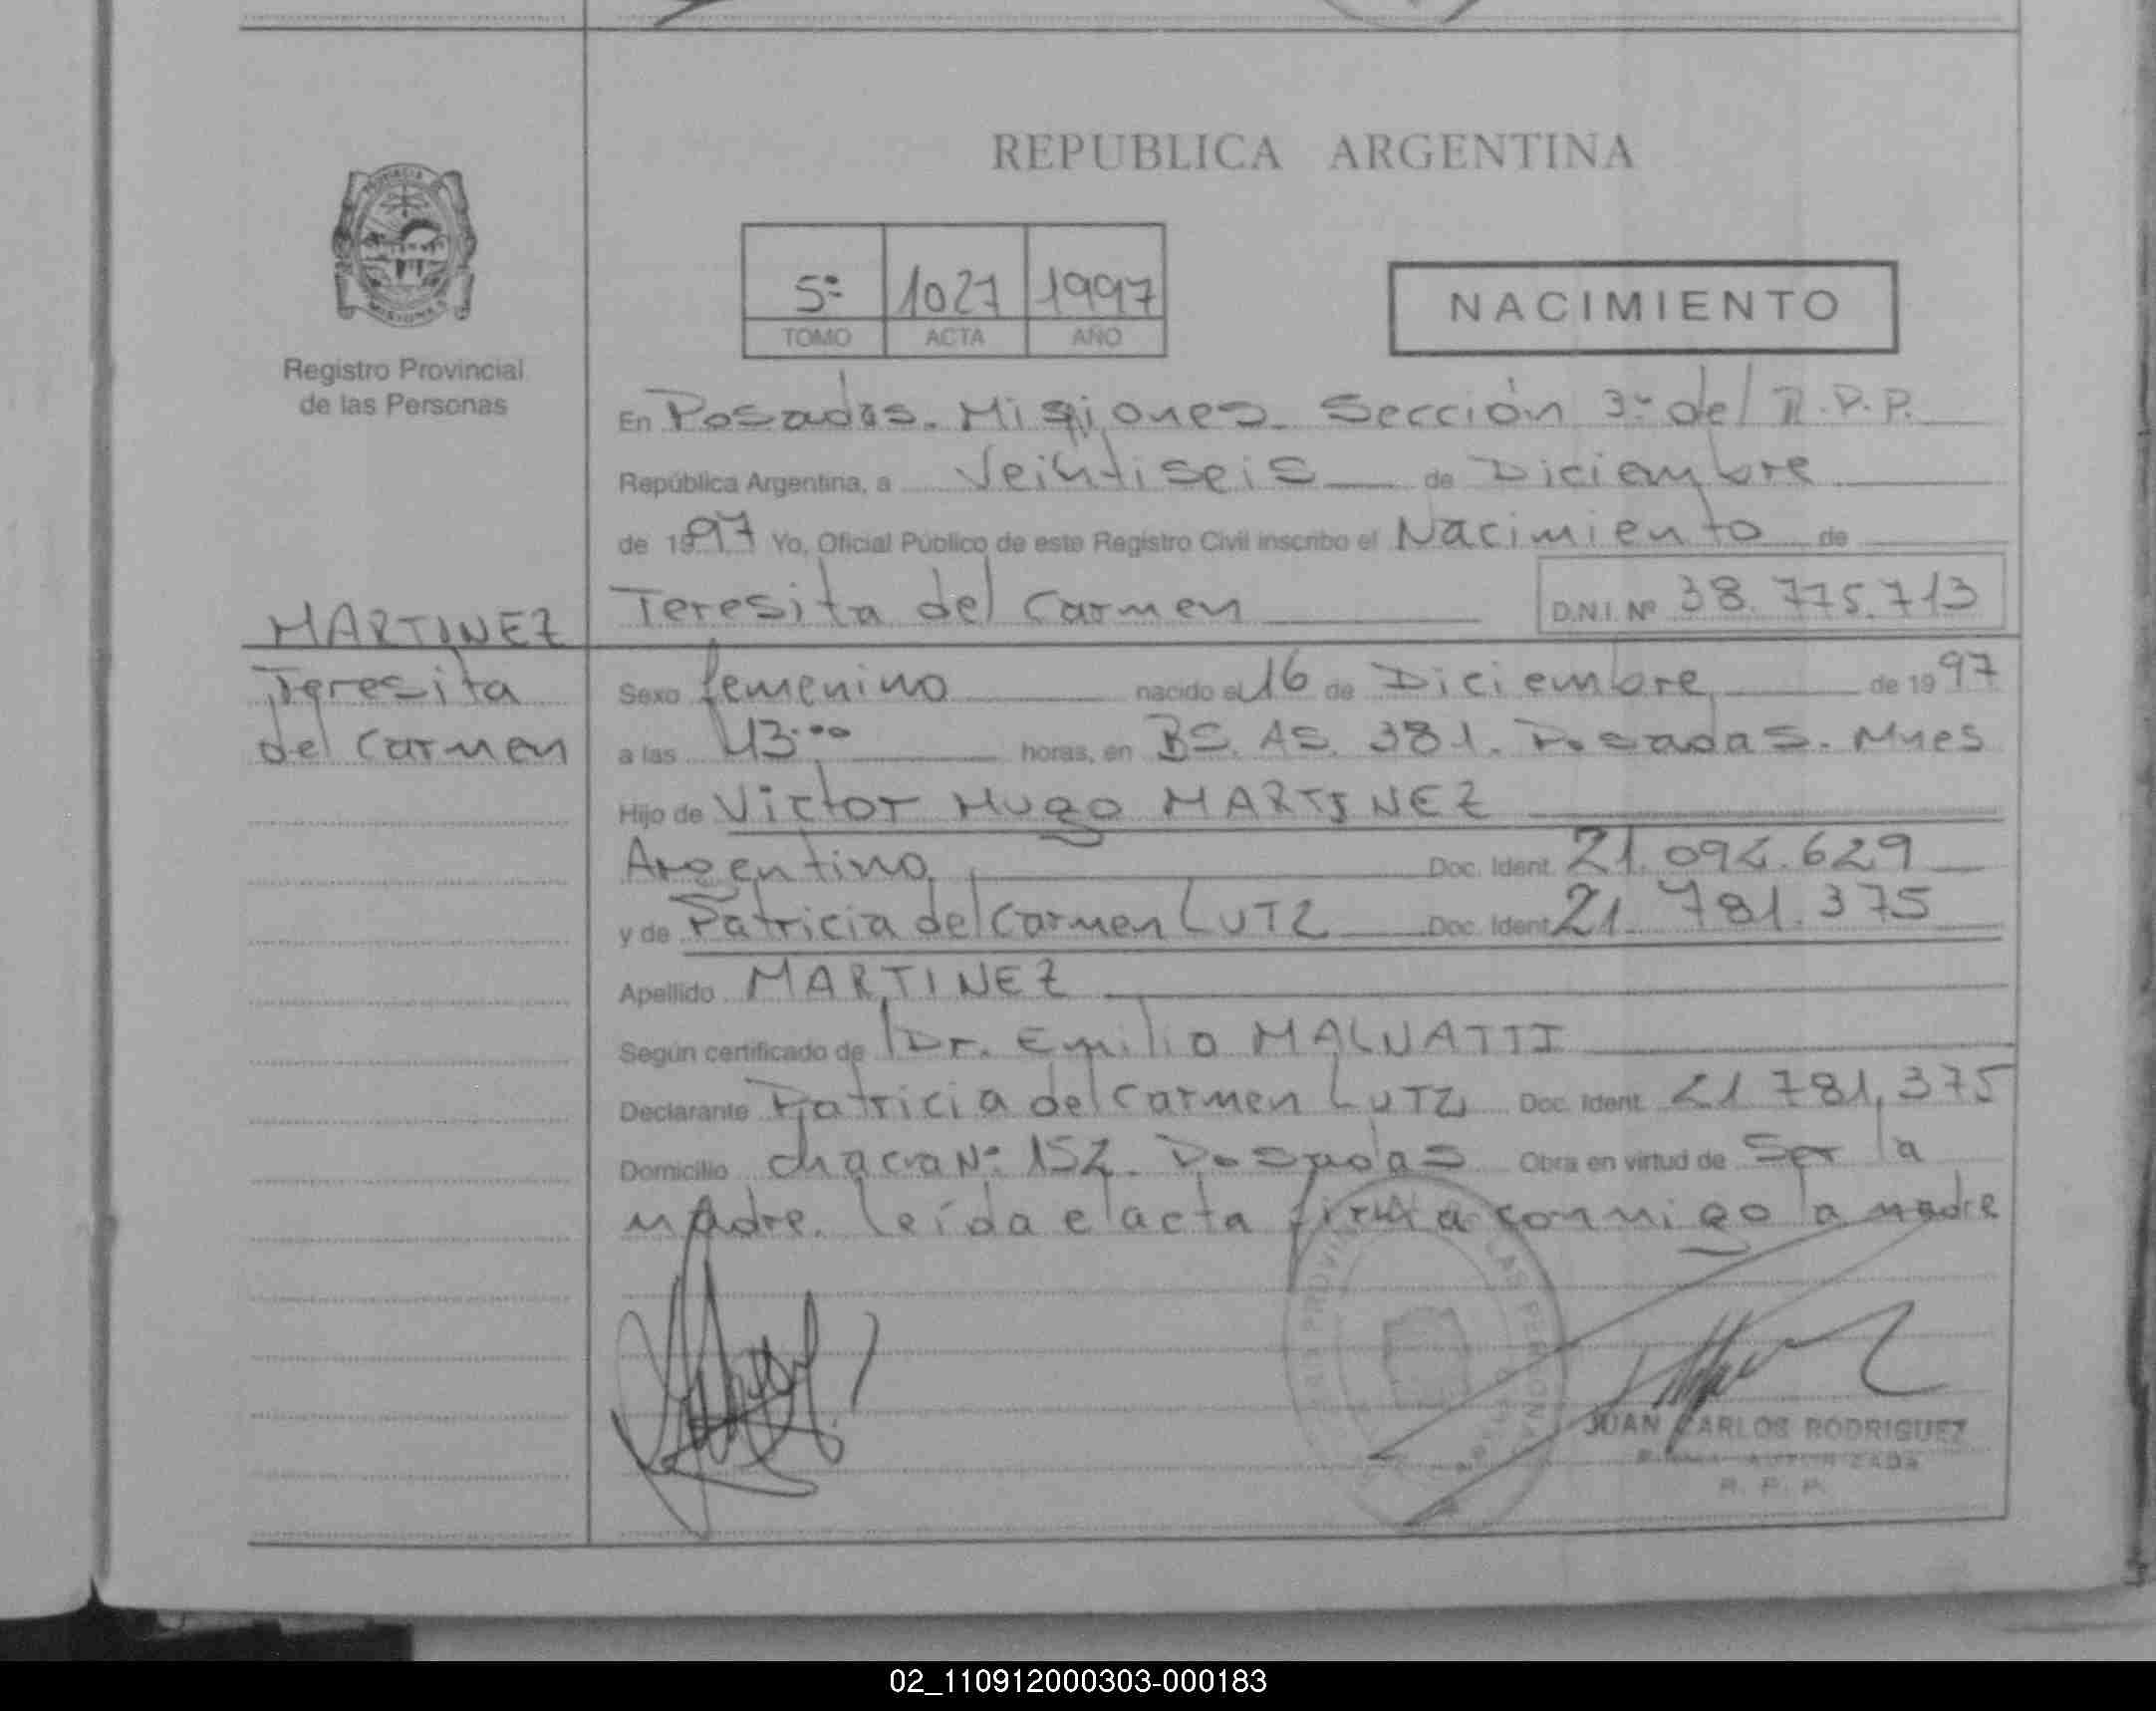 REPUBLICA ARGENTINA
5º 1027 1997
TOMO ACTA AÑO
NACIMIENTO
Registro Provincial
de las Personas
En Posadas. Misiones. Sección 3º del R.P.P.
República Argentina, a Veintiseis de Diciembre
de 1997 Yo, Oficial Público de este Registro Civil inscribo el Nacimiento de
Teresita del Carmen D.N.I. Nº 38.775.713
MARTINEZ
Teresita
del Carmen
Sexo femenino nacido el 16 de Diciembre de 1997
a las 13:00 horas, en BS. AS. 381. Posadas. Mnes
Hijo de Victor Hugo MARTINEZ
Argentino Doc. Ident. 21.094.629
y de Patricia del Carmen LUTZ Doc. Ident. 21.781.375
Apellido MARTINEZ
Según certificado de Dr. Emilio MALNATTI
Declarante Patricia del Carmen LUTZ Doc. Ident. 21.781.375
Domicilio chacra Nº 152. Posadas Obra en virtud de Ser la
madre. leída el acta firma conmigo la madre
JUAN CARLOS RODRIGUEZ
FIRMA AUTORIZADA
R. P. P.
02_110912000303-000183